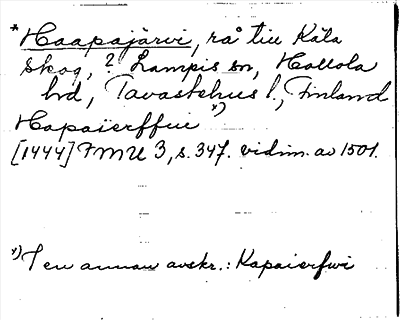 * Haapajärvi, rå till Käla
skog, ? Lampis sn, Hollola
hd, Tavastehus l., Finland
Hapaierffue x)
[1444] FMU 3, s. 347. vidim. av 1501.
x) I en annan avskr.: Kapaierfwi